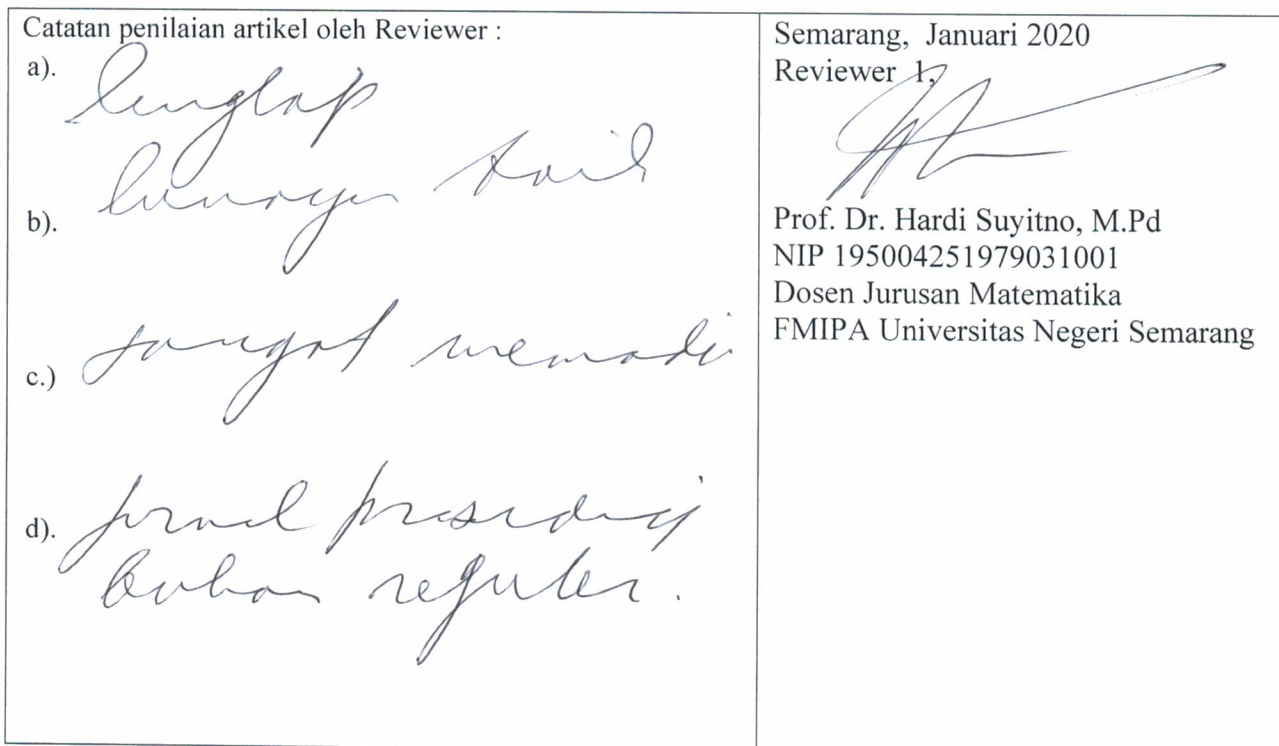 Catatan penilaian artikel oleh Reviewer :
a). lengkap
b). baik
c.) sangat memadai
d). jurnal prosiding
bukan reguler.
Semarang, Januari 2020
Reviewer 1,
Prof. Dr. Hardi Suyitno, M.Pd
NIP 195004251979031001
Dosen Jurusan Matematika
FMIPA Universitas Negeri Semarang